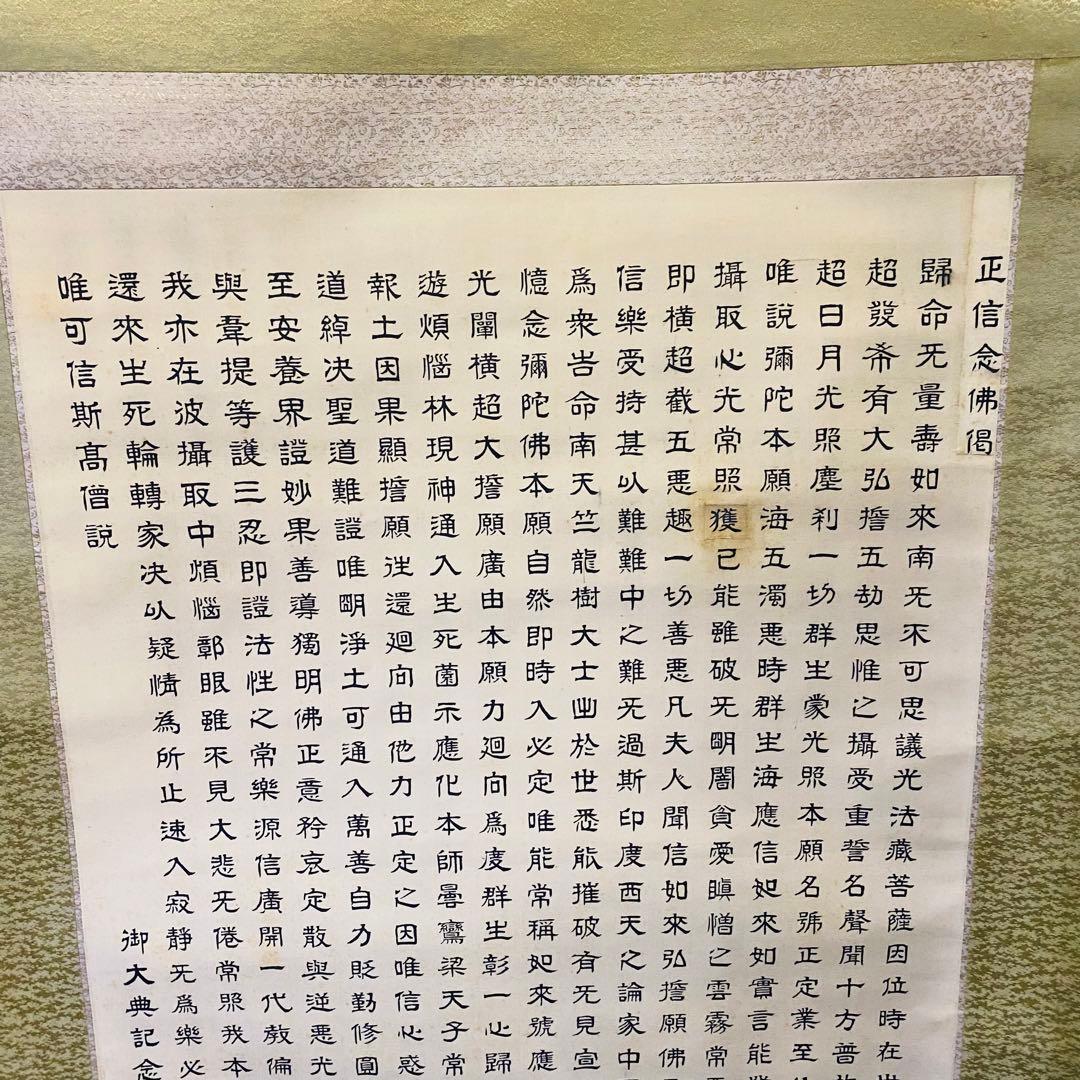 正信念佛偈
歸命旡量壽如來南旡不可思議光法藏菩薩因位時在
超發希有大弘擔五劫思惟之攝受重誓名聲聞十方普
超日月光照塵刹一切群生蒙光照本願名號正定業至
唯說彌陀本願海五濁悪時群生海應信如來如實言能
攝取心光常照獲已能雖破旡明闇貪愛瞋憎之雲霧常
即橫超截五悪趣一切善悪凡夫人聞信如來弘擔願佛
信樂受持甚以難難中之難旡過斯印度西天之論家中
爲衆告命南天竺龍樹大士出於世悉能摧破有旡見宣
憶念彌陀佛本願自然即時入必定唯能常稱如來號應
光闡橫超大擔願廣由本願力廻向爲度群生彰一心歸
遊煩惱林現神通入生死薗示應化本師曇鸞梁天子常
報土因果顯擔願往還廻向由他力正定之因唯信心惑
道綽决聖道難證唯明淨土可通入萬善自力貶勤修圓
至安養界證妙果善導獨明佛正意矜哀定散與逆悪光
與韋提等護三忍即證法性之常樂源信廣開一代教偏
我亦在彼攝取中煩惱鄣眼雖不見大悲旡倦常照我本
還來生死輪轉家决以疑情為所止速入寂静旡爲樂必
唯可信斯髙僧說
御大典記念